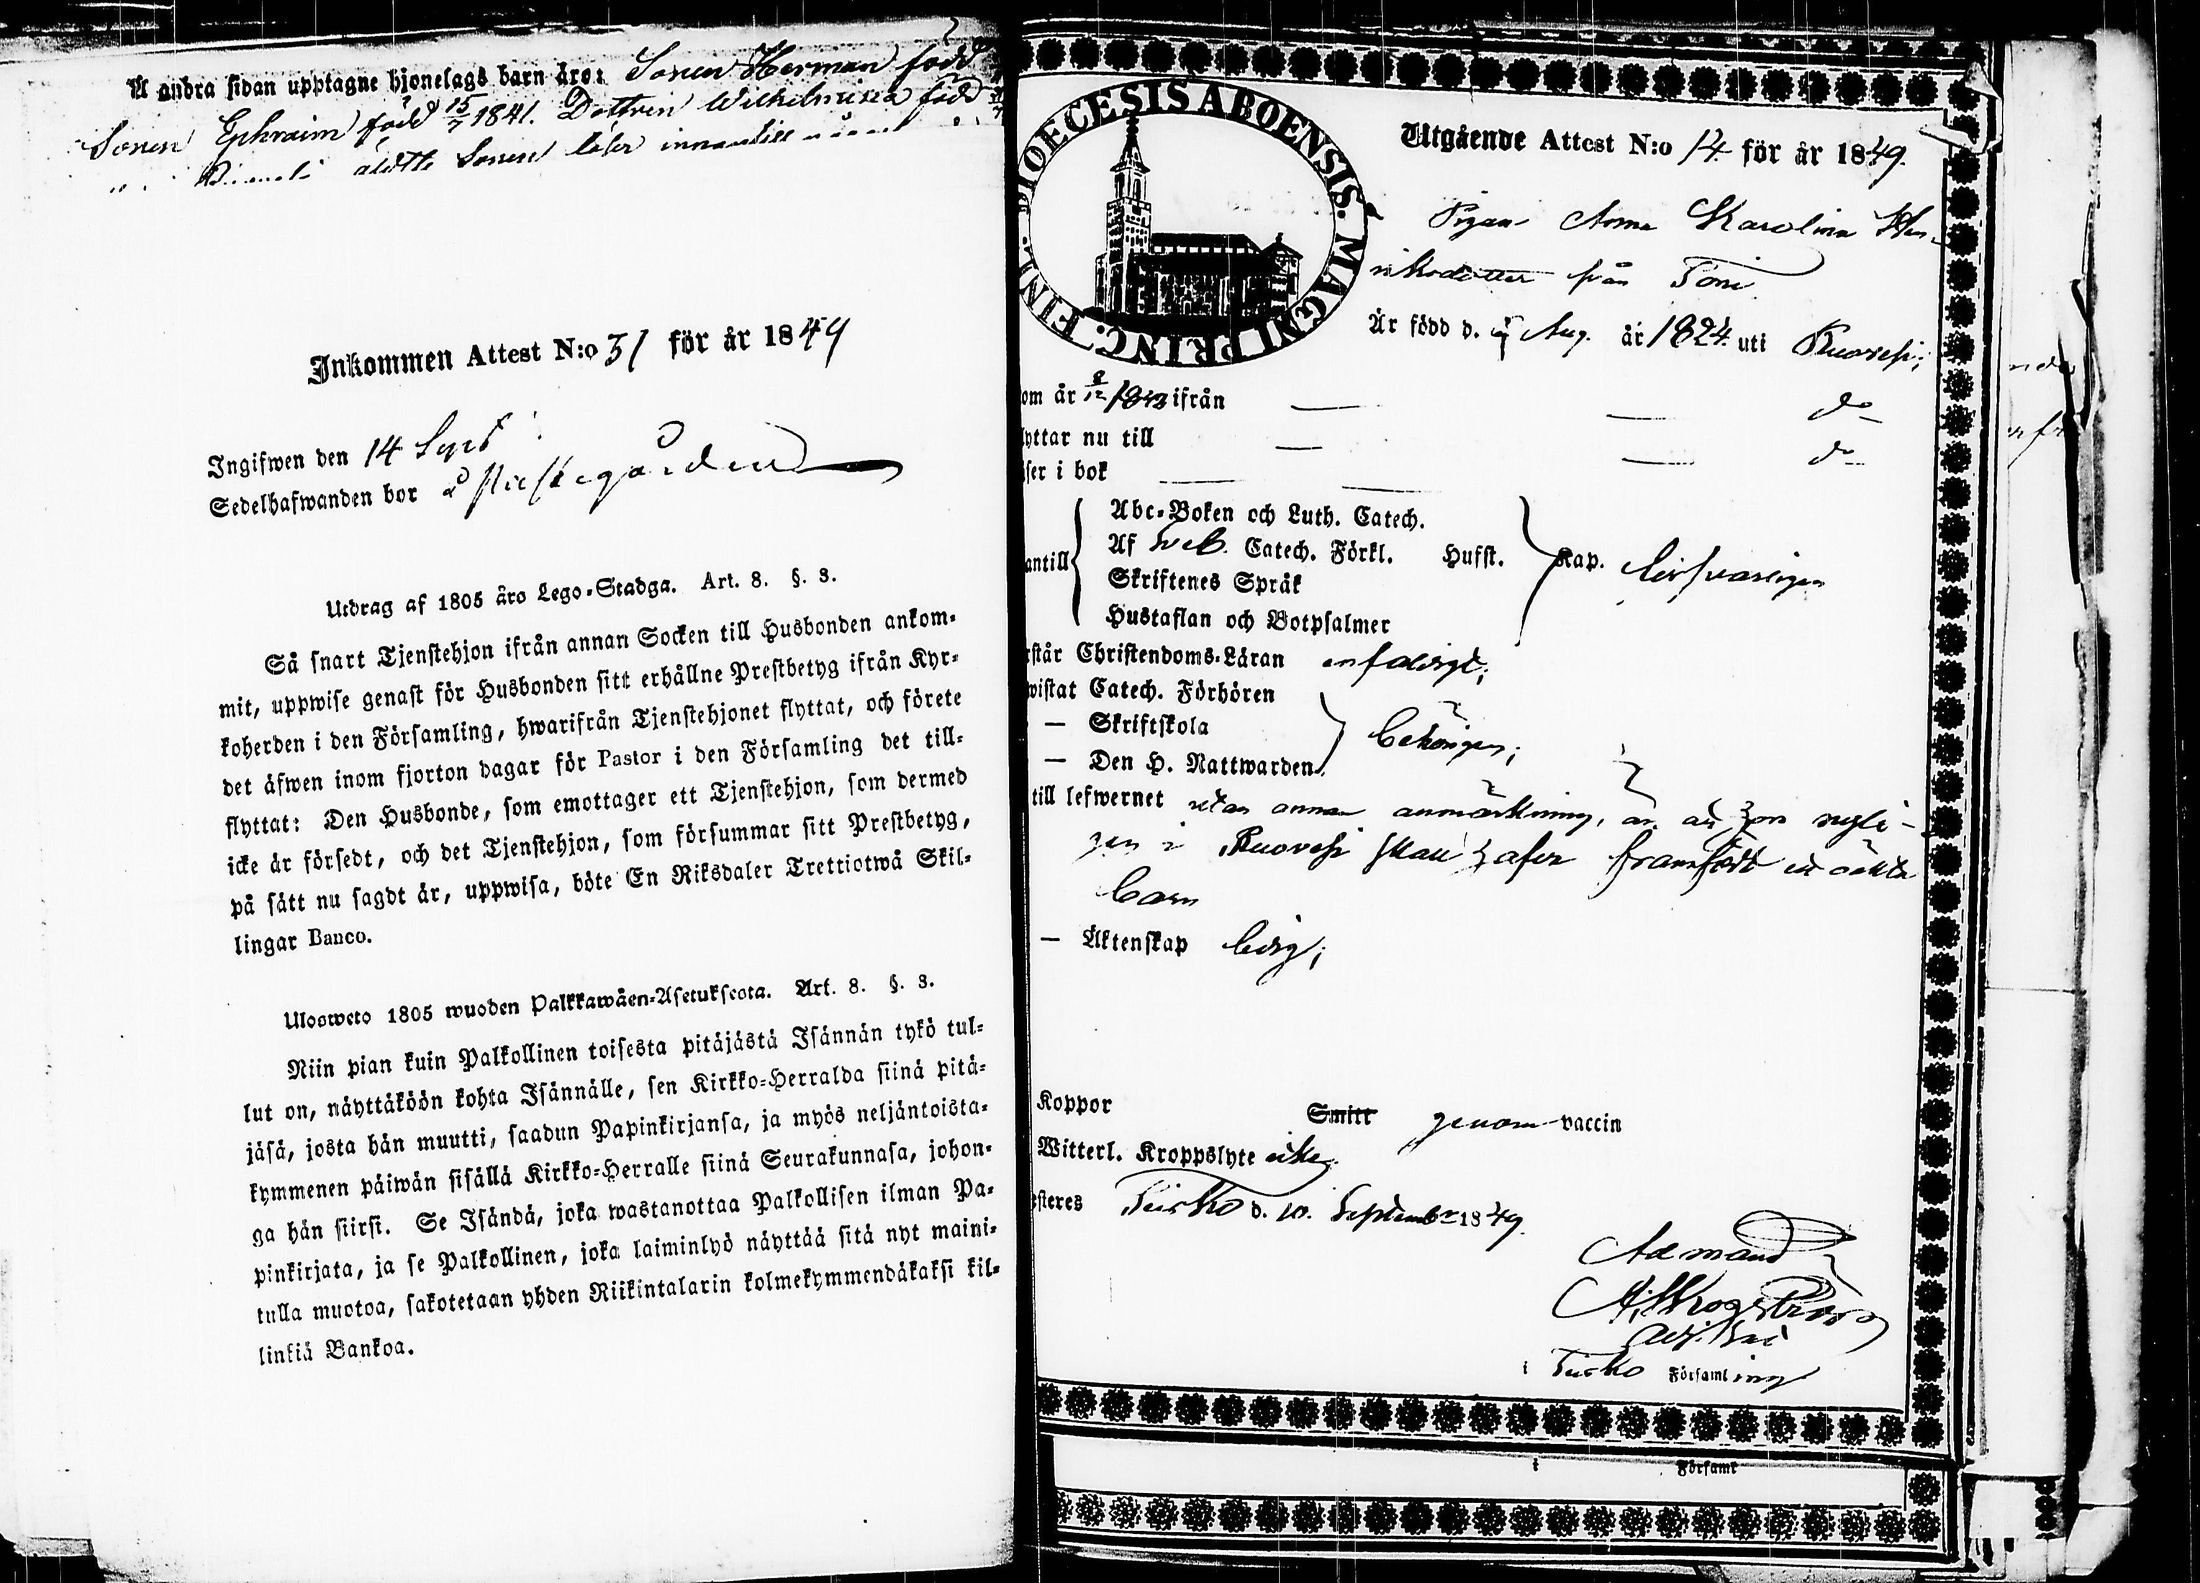 Å andra sidan upptagne hjonelags barn äro: Sonen Herman född
Sonen Ephraim född 15/7 1841. Dottren Wilhelmina född
äldste Sonen läser innantill
Inkommen Attest N:o 31 för år 1849
Ingifwen den 14 Sept
Sedelhafwanden bor å Prestegården
Utdrag af 1805 års Lego-Stadga. Art. 8. §. 3.
Så snart Tjenstehjon ifrån annan Socken till Husbonden ankom-
mit, uppwise genast för Husbonden sitt erhållne Prestbetyg ifrån Kyr-
koherden i den Församling, hwarifrån Tjenstehjonet flyttat, och förete
det äfwen inom fjorton dagar för Pastor i den Församling det till-
flyttat: Den Husbonde, som emottager ett Tjenstehjon, som dermed
icke är försedt, och det Tjenstehjon, som försummar sitt Prestbetyg,
på sätt nu sagdt är, uppwisa, böte En Riksdaler Trettiotwå Skil-
lingar Banco.
Ulosweto 1805 wuoden Palkkawäen-Asetuksesta. Art. 8. §. 3.
Niin pian kuin Palkollinen toisesta pitäjästä Isännän tykö tul-
lut on, näyttäköön kohta Isännälle, sen Kirkko-Herralda siinä pitä-
jäsä, josta hän muutti, saadun Papinkirjansa, ja myös neljäntoista-
kymmenen päiwän sisällä Kirkko-Herralle siinä Seurakunnasa, johon-
ga hän siirsi. Se Isändä, joka wastanottaa Palkollisen ilman Pa-
pinkirjata, ja se Palkollinen, joka laiminlyö näyttää sitä nyt maini-
tulla muotoa, sakotetaan yhden Riikintalarin kolmekymmendäkaksi kil-
linkiä Bankoa.
DIOECESIS ABOENSIS. MAGNI PRINC. FINL.
Utgående Attest N:o 14 för år 1849.
Pigan Anna Karolina Hen-
riksdotter från Tomi
Är född d. Aug. år 1824 uti Ruovesi;
om år ifrån — — do
lyttar nu till — — do
ser i bok — —
Abc-Boken och Luth. Catech.
antill Af Web. Catech. Förkl. Hufst. Kap. försvarligen
Skriftenes Språk
Hustaflan och Botpsalmer
rstår Christendoms-Läran enfaldigt;
wistat Catech. Förhören
— Skriftskola behörigen;
— Den H. Nattwarden
till lefwernet utan annan anmärkning, än att hon nyli-
gen i Ruovesi skall hafva framfödt ett oäkta
barn
— Äktenskap ledig;
Koppor Smitt genom vaccin
Witterl. Kroppslyte icke.
esteres Teisko d. 10. September 1849.
A. Skogström
i Teisko Församling
i Församl